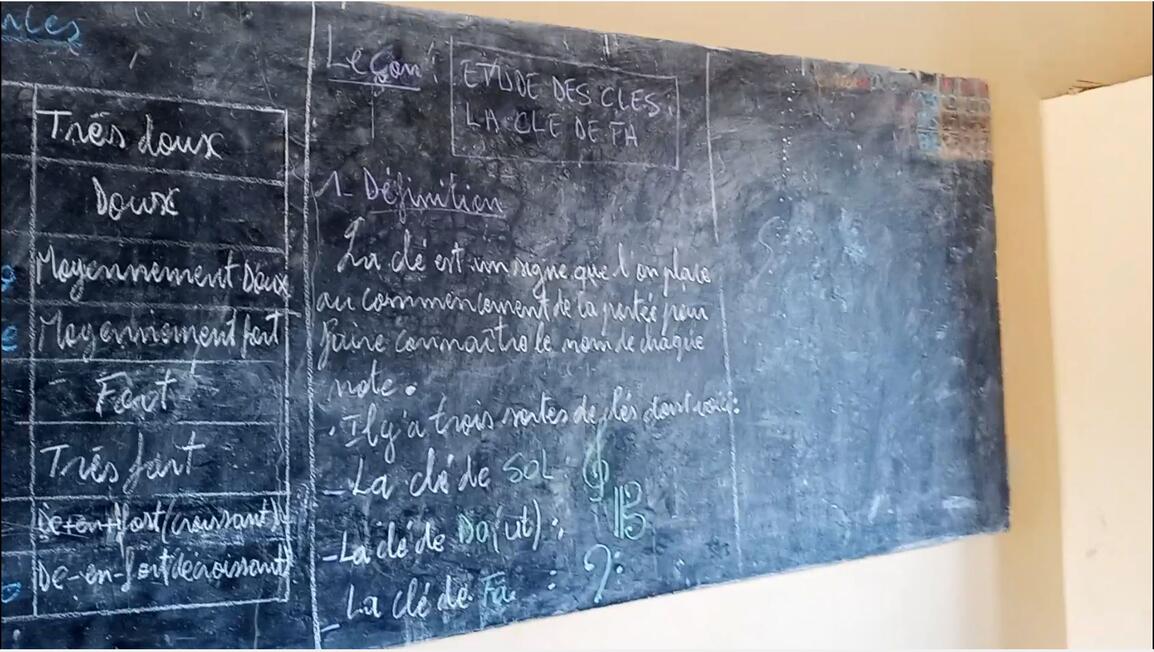 Très doux
Doux
Moyennement Doux
Moyennement fort
Fort
Très fort
De-en-fort (croissant)
De-en-fort (décroissant)
Leçon :
ETUDE DES CLES :
LA CLE DE FA
1. Définition
La clé est un signe que l'on place
au commencement de la portée pour
faire connaître le nom de chaque
note.
. Il y'a trois sortes de clés dont voici :
- La clé de SOL :
- La clé de Do (ut) :
- La clé de Fa :